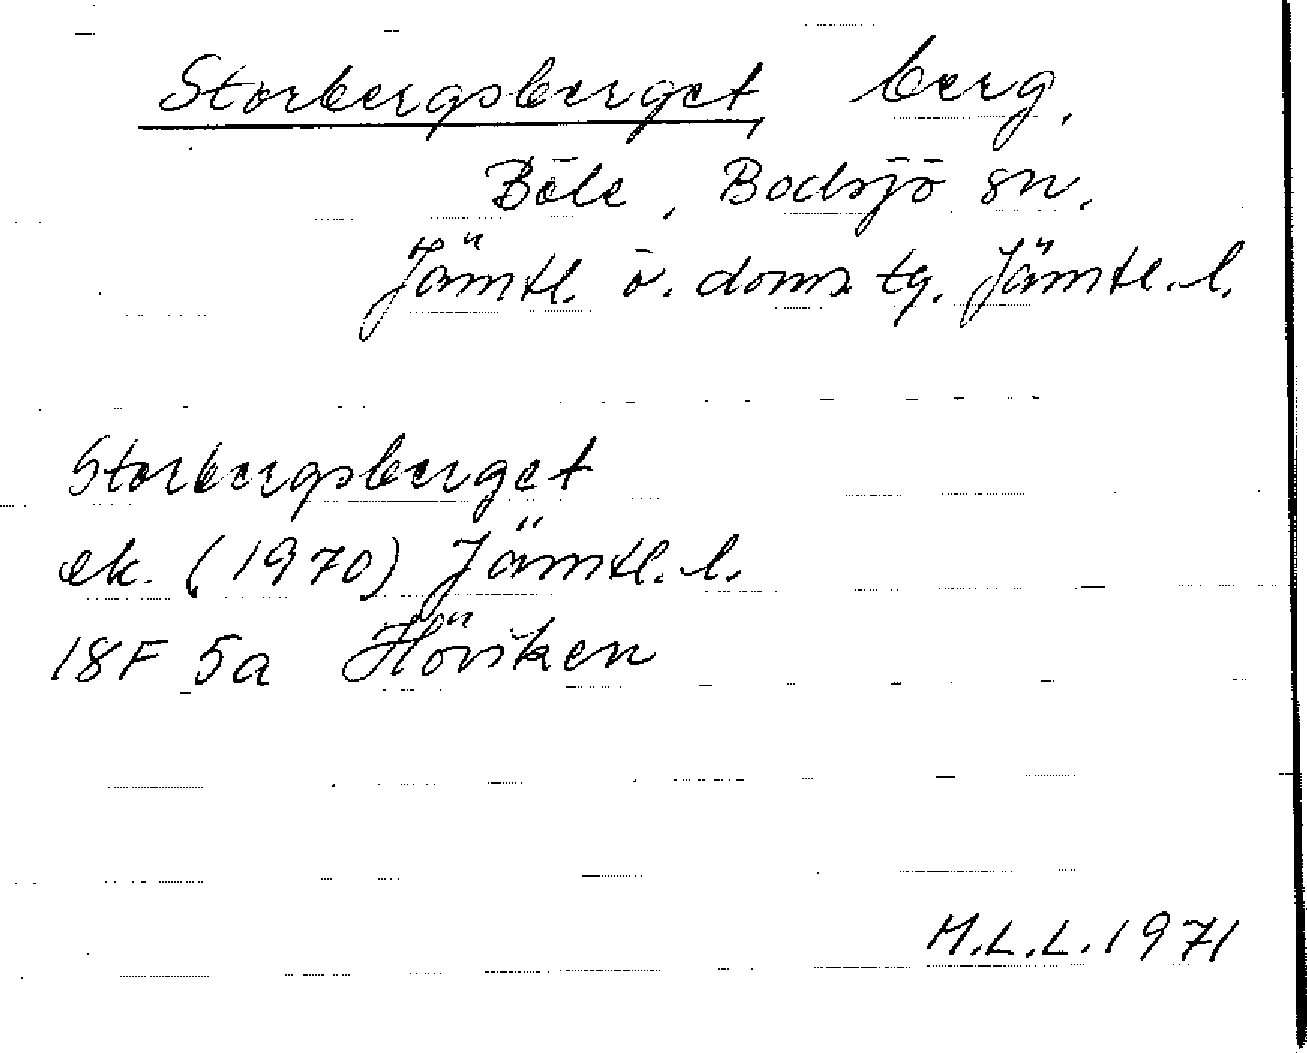 Storbergsberget, berg,
Böle, Bodsjö sn.
Jämtl. ö. doms. tg. Jämtl. l.
Storbergsberget
ek. (1970) Jämtl. l.
18F 5a Höviken
M.L.L. 1971